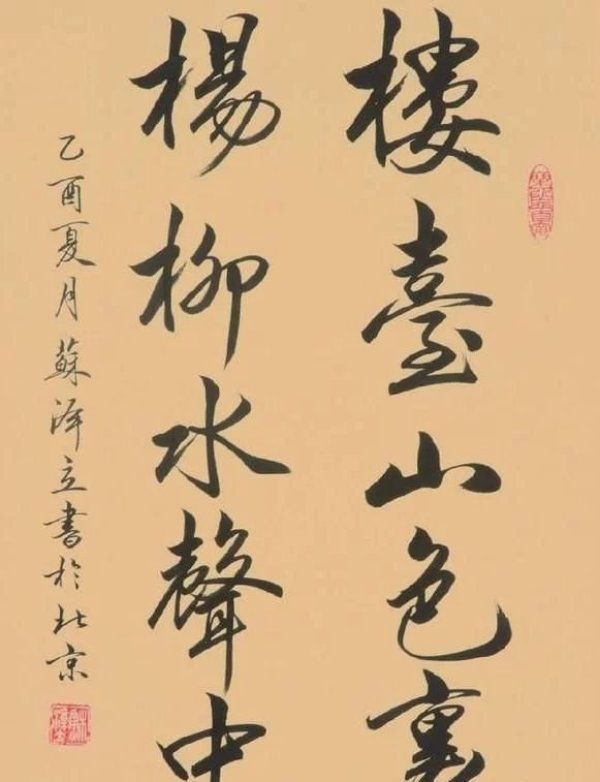 樓臺山色裏
楊柳水聲中
乙酉夏月蘇澤立書於北京